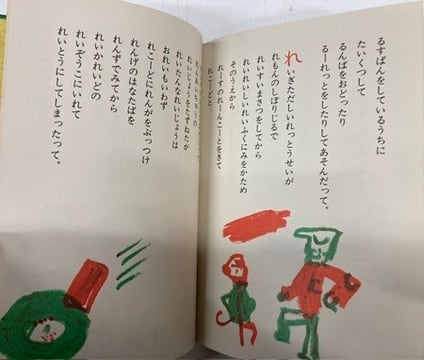 るすばんをしているうちに
たいくつして
るんばをおどったり
るーれっとをしたりしてあそんだって。
れいぎただしいれっとうせいが
れもんのしぼりじるで
れいすいまさつをしてから
れいれいしいれいふくにみをかため
そのうえから
れーすのれーんこーとをきて
れこーどと
れいじょうをたずねたが
れいたんなれいじょうは
おれいもいわず
れこーどにれんがをぶっつけ
れんげのはなたばを
れんずでみてから
れいかれいどの
れいぞうこにいれて
れいとうにしてしまったって。